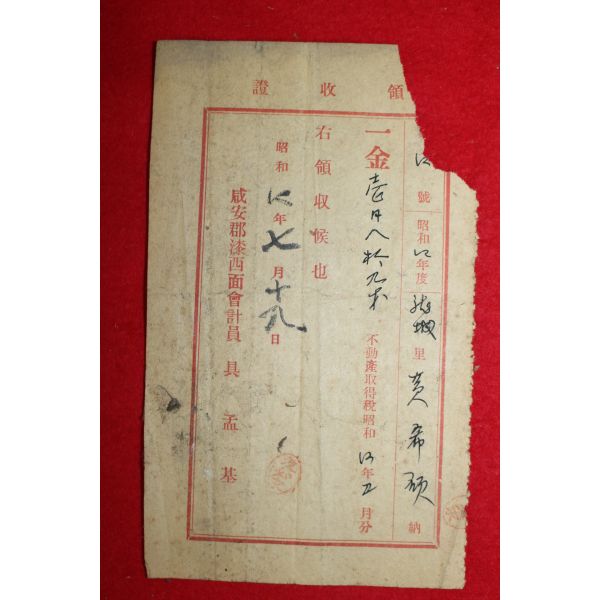 領收證
號 昭和 年度 里 黃 希 碩 納
一金 壹円八拾九戔 不動產取得稅昭和 年 月分
右領收候也
昭和 年七月十九日
咸安郡漆西面會計員 具孟基